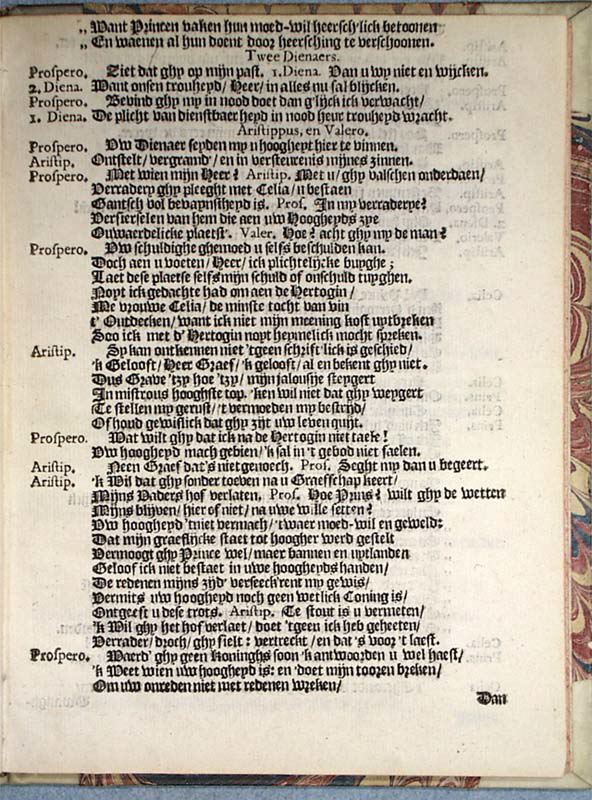 „ Want Princen vaken hun moed-wil heersch'lick betoonen
„ En waenen al hun doent door heersching te verschoonen.
Twee Dienaers.
Prospero. Ziet dat ghy op mijn past. 1. Diena. Van u wy niet en wijcken.
2. Diena. Want onsen trouheyd/ Heer/ in alles nu sal blijcken.
Prospero. Bevind ghy my in nood doet dan g'lijck ick verwacht/
1. Diena. De plicht van dienstbaerheyd in nood heur trouheyd wracht.
Aristippus, en Valero.
Prospero. Vw Dienaer seyden my u hoogheyt hier te vinnen.
Aristip. Ontstelt/ vergramd/ en in versteurenis mijnes zinnen.
Prospero. Met wien mijn Heer? Aristip. Met u/ ghy valschen onderdaen/
Verradery ghy pleeght met Celia/ u bestaen
Gantsch vol beveynstheyd is. Prof. In my verraderye?
Versierselen van hem die aen uw Hoogheyds zye
Ouwaerdelicke plaetst. Valer. Hoe? acht ghy my de man?
Prospero. Vw schuldighe ghemoed u selfs beschulden kan.
Doch aen u voeten/ Heer/ ick plichtelijcke buyghe;
Laet dese plaetse selfs mijn schuld of onschuld tuyghen.
Noyt ick gedachte had om aen de Hertogin/
Me vrouwe Celia/ de minste tocht van vin
t' Outdecken/ want ick niet mijn meening kost uytbreken
Soo ick met d'Hertogin noyt heymelick mocht spreken.
Aristip. Sy kan ontkennen niet 'tgeen schrift'lick is geschied/
'k Gelooft/ Heer Graef/ 'k gelooft/ al en bekent ghy niet.
Dus Grave 'tzy hoe 'tzy/ mijn jalousije steygert
In mistrous hooghste top. 'ken wil niet dat ghy weygert
Te stellen my gerust/ 't vermoeden my bestrijd/
Of houd gewislick dat ghy zijt uw leven quijt.
Prospero. Wat wilt ghy dat ick na de Hertogin niet taele!
Vw hoogheyd mach gebien/ 'k sal in 't gebod niet faelen.
Aristip. Neen Graef dat's niet genoech. Prof. Seght my dan u begeert.
Aristip. 'k Wil dat ghy sonder toeven na u Graefschap keert/
Mijns Vaders hof verlaten. Prof. Hoe Prins? wilt ghy de wetten
Mijns blijven/ hier of niet/ na uwe wille setten?
Vw hoogheyd 'tniet vermach/ 'twaer moed-wil en geweld:
Dat mijn graeflijcke staet tot hoogher werd gestelt
Vermoogt ghy Prince wel/ maer bannen en uytlanden
Geloof ick niet bestaet in uwe hoogheyds handen/
De redenen mijns zijd' verseeck'rent my gewis/
Vermits uw hoogheyd noch geen wetlick Coning is/
Ontgeeft u dese trots. Aristip. Te stout is u vermeten/
'k Wil ghy het hof verlaet/ doet 'tgeen ick heb geheeten/
Verrader/ droch/ ghy fielt: vertreckt/ en dat's voor 't laest.
Prospero. Waerd' ghy geen Koninghs soon 'k antwoorden u wel haest/
'k Weet wien uw hoogheyd is: en 'doet mijn tooren breken/
Om uw onreden niet met redenen wreken/
Dan